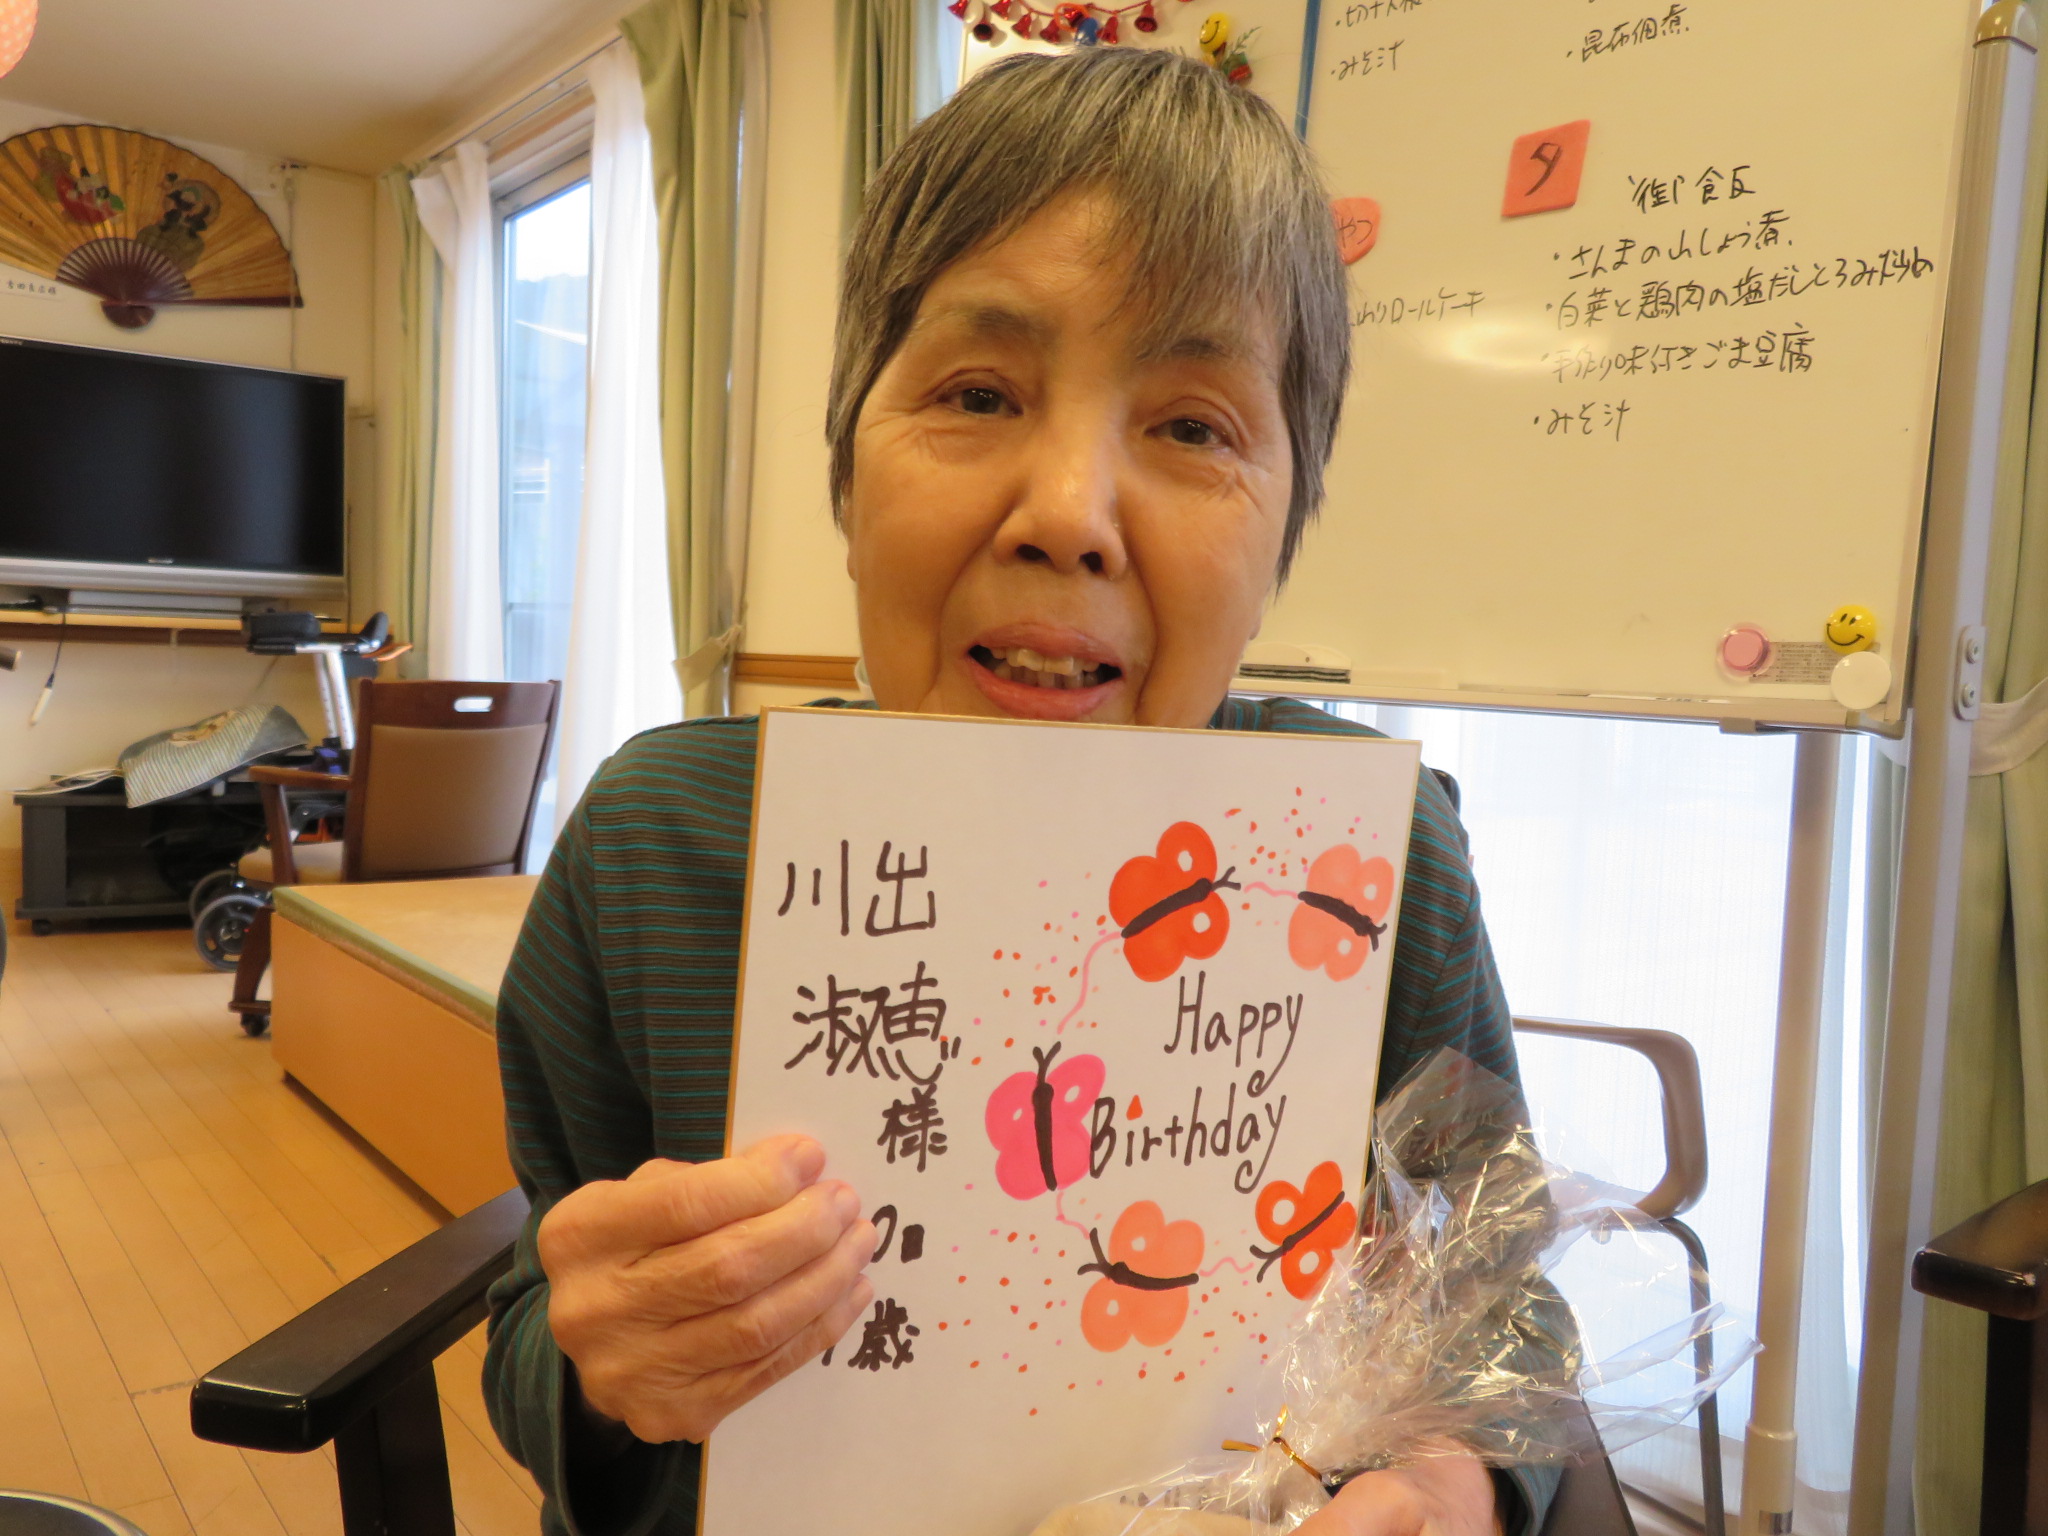 ・みそ汁
・昆布佃煮
夕
御飯
・さんまの山しょう煮
・白菜と鶏肉の塩だしとろみ炒め
・手作り味付きごま豆腐
・みそ汁
ロールケーキ
川出
淑恵
様
歳
Happy
Birthday